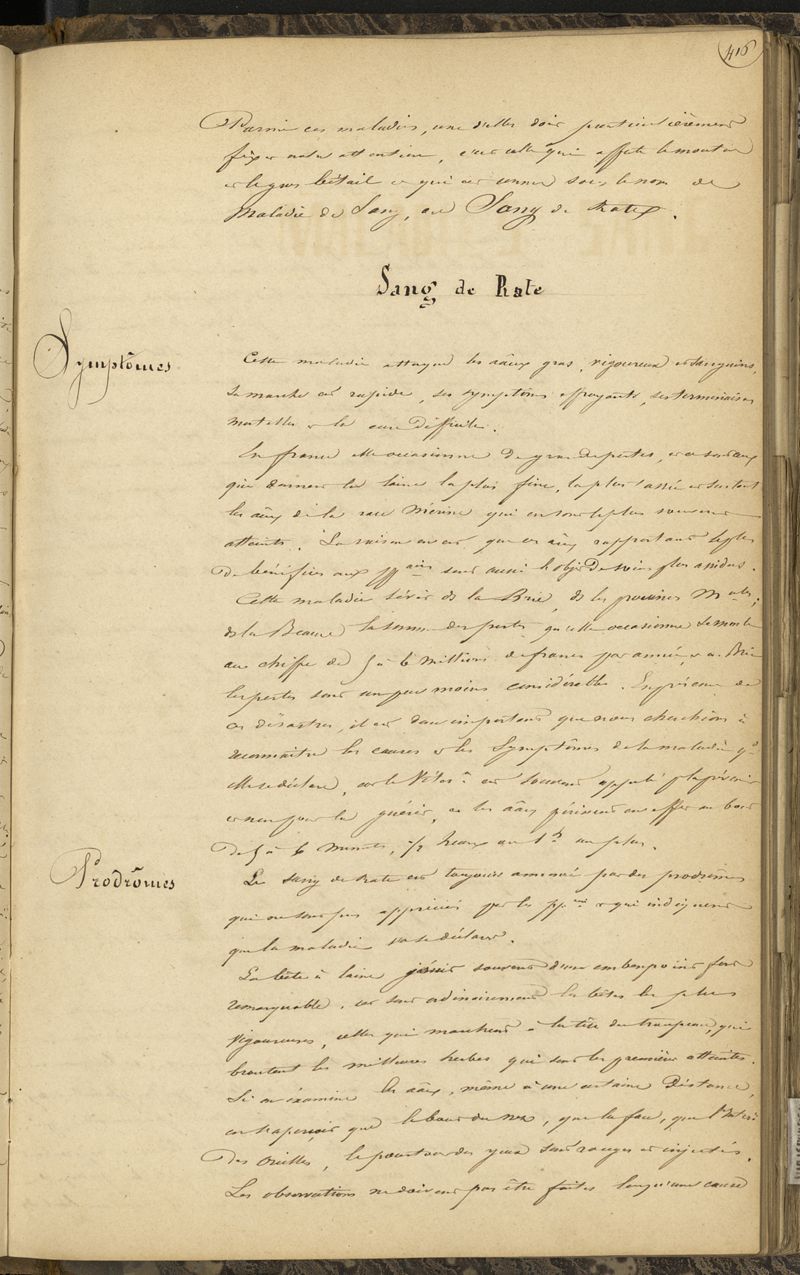 416
Parmi ces maladies, une d'elles doit particulièrement
fixer notre attention, c'est celle qui affecte le mouton
et le gros bétail et qui est connue sous le nom de
Maladie de Sang, ou Sang de Rate.
Sang de Rate
Symptômes
Cette maladie attaque les aãux gras, vigoureux et sanguins,
sa marche est rapide, ses symptômes effrayants, ses terminaisons
mortelles et la cure difficile.
En france elle occasionne de grandes pertes, et ce sont ceux
qui donnent la laine la plus fine, la plus tassée et surtout
les aãux de la race Mérinos qui en sont le plus souvent
atteints. La raison en est que ces aãux rapportant le plus
de bénéfices aux pp.aires sont aussi l'objet de soins plus assidus.
Cette maladie sévit ds la Brie, ds les provinces
ds la Beauce la somme des pertes qu'elle occasionne se monte
au chiffre de 5 à 6 millions de francs par année, et en Brie
les pertes sont un peu moins considérables. En présence de
ces désastres, il est donc important que nous cherchions à
reconnaître les causes et les Symptômes de la maladie qd
elle se déclare, car le Vétre est souvent appelé pr la prévenir
et non pour la guérir, et les aãux périssent en effet au bout
de 5 à 6 Minutes, 1/2 heure ou 1h au plus.
Prodrômes
Le sang de rate est toujours annoncé par des prodrômes
qui ne sont pas appréciés par les pp.res et qui indiquent
que la maladie va se déclarer.
La bête à laine jouit souvent d'un embonpoint fort
remarquable, ce sont ordinairement les bêtes les plus
vigoureuses, celles qui marchent à la tête du troupeau, qui
broutent les meilleures herbes qui sont les premières atteintes.
Si on examine les aãux, même à une certaine distance,
on s'aperçoit que le bout du nez, que la face, que l'intérr
des oreilles, le pourtour des yeux sont rouges et injectés.
Les observations ne doivent pas être faites lorsqu'une cause